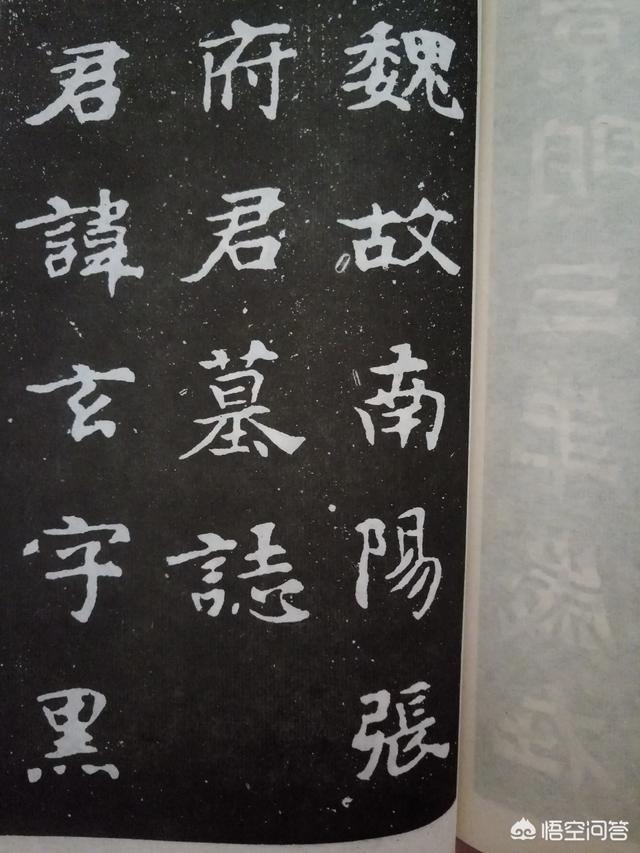 魏故南陽張
府君墓誌
君諱玄字黑
悟空问答